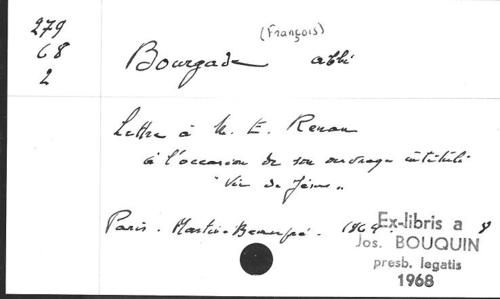 279
68
2
(François)
Bourgade abbé
Lettre à M. E. Renan
à l'occasion de son ouvrage intitulé
"Vie de Jésus"
Paris. Martin-Beaupré. 1864 8
Ex-libris a
Jos. BOUQUIN
presb. legatis
1968